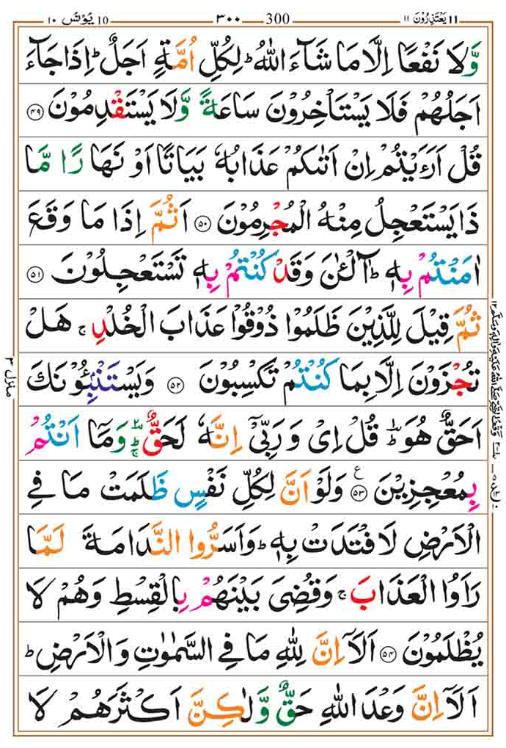 یَعْتَذِرُوْنَ ١١ 11 300 ٣٠٠ یُوْنُسَ ١٠ 10
وَّلَا نَفْعًا اِلَّا مَا شَآءَ اللّٰهُ ؕ لِكُلِّ اُمَّةٍ اَجَلٌ ؕ اِذَا جَآءَ
اَجَلُهُمْ فَلَا یَسْتَاْخِرُوْنَ سَاعَةً وَّلَا یَسْتَقْدِمُوْنَ ﴿۴۹﴾
قُلْ اَرَءَیْتُمْ اِنْ اَتٰىكُمْ عَذَابُهٗ بَیَاتًا اَوْ نَهَارًا مَّا
ذَا یَسْتَعْجِلُ مِنْهُ الْمُجْرِمُوْنَ ﴿۵۰﴾ اَثُمَّ اِذَا مَا وَقَعَ
اٰمَنْتُمْ بِهٖ ؕ آٰلْـٰٔنَ وَقَدْ كُنْتُمْ بِهٖ تَسْتَعْجِلُوْنَ ﴿۵۱﴾
ثُمَّ قِیْلَ لِلَّذِیْنَ ظَلَمُوْا ذُوْقُوْا عَذَابَ الْخُلْدِ ۚ هَلْ
تُجْزَوْنَ اِلَّا بِمَا كُنْتُمْ تَكْسِبُوْنَ ﴿۵۲﴾ وَیَسْتَنْۢبِـُٔوْنَكَ
اَحَقٌّ هُوَ ؔؕ قُلْ اِیْ وَرَبِّیْۤ اِنَّهٗ لَحَقٌّ ؔؕۚ وَمَاۤ اَنْتُمْ
بِمُعْجِزِیْنَ ﴿۵۳﴾ ع وَلَوْ اَنَّ لِكُلِّ نَفْسٍ ظَلَمَتْ مَا فِی
الْاَرْضِ لَافْتَدَتْ بِهٖ ؕ وَاَسَرُّوا النَّدَامَةَ لَمَّا
رَاَوُا الْعَذَابَ ۚ وَقُضِیَ بَیْنَهُمْ بِالْقِسْطِ وَهُمْ لَا
یُظْلَمُوْنَ ﴿۵۴﴾ اَلَاۤ اِنَّ لِلّٰهِ مَا فِی السَّمٰوٰتِ وَالْاَرْضِ ؕ
اَلَاۤ اِنَّ وَعْدَ اللّٰهِ حَقٌّ وَّلٰكِنَّ اَكْثَرَهُمْ لَا
منزل ٣